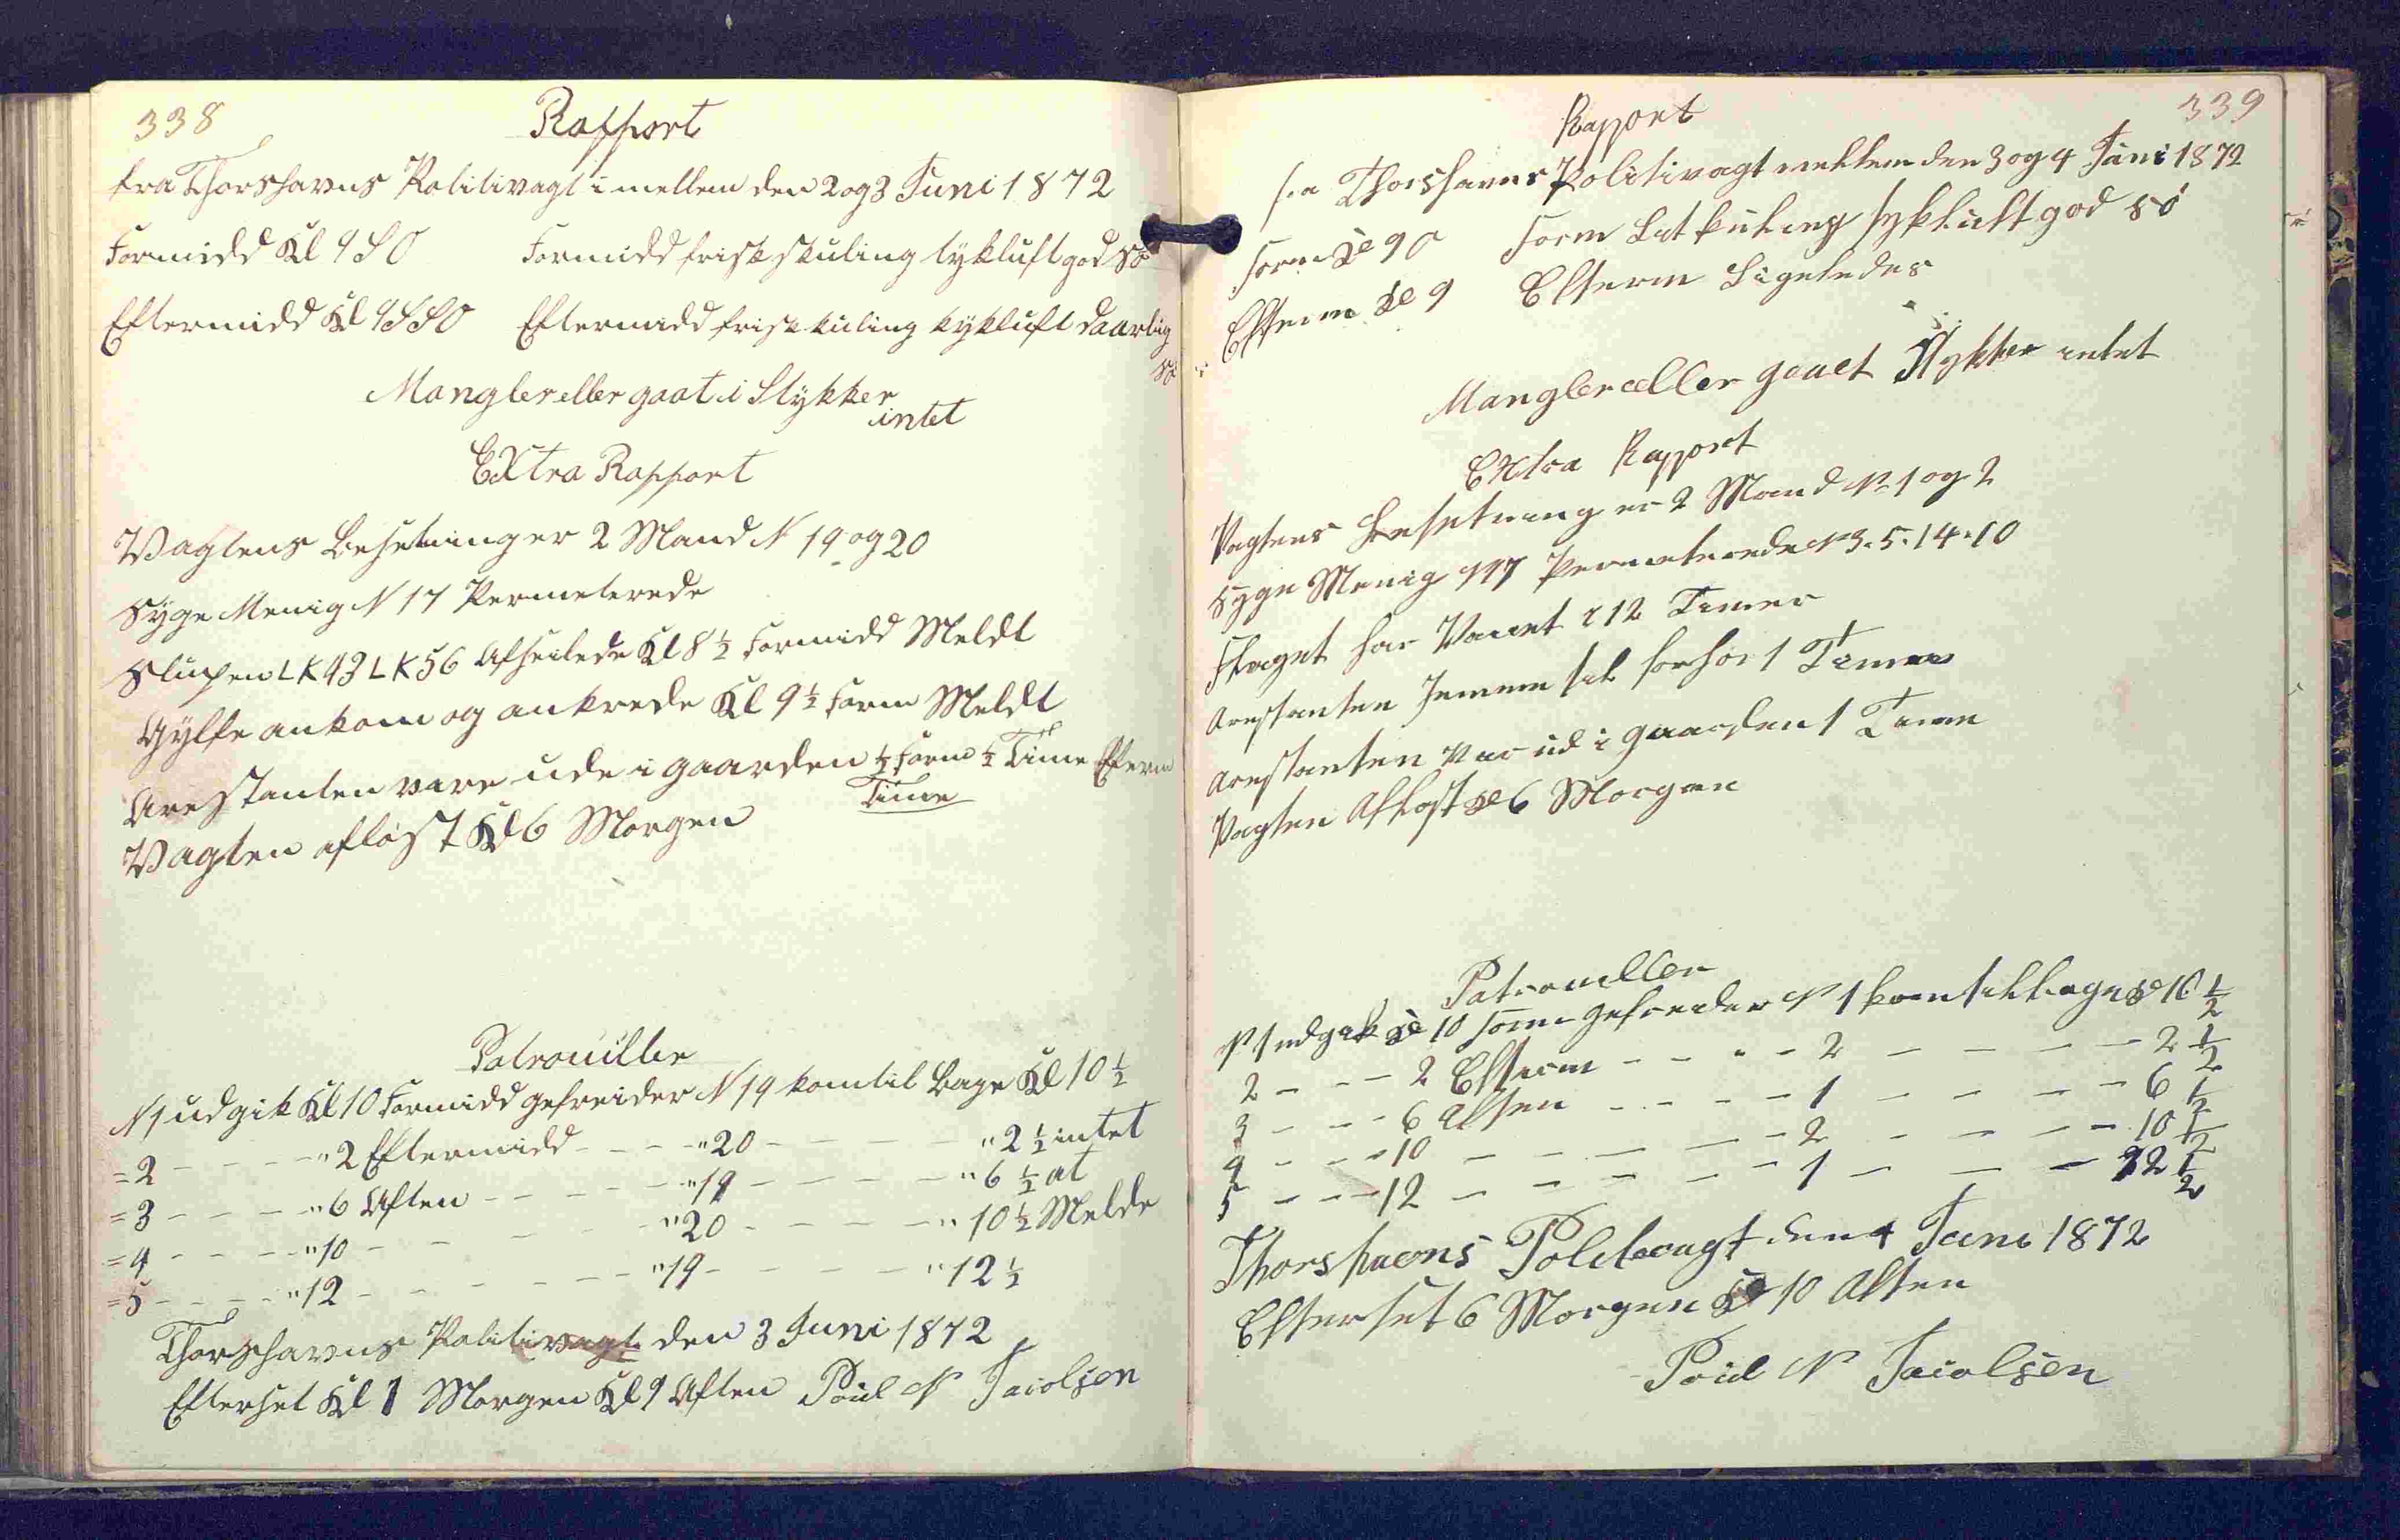 338
Rapport
fra Thorshavns Politivagt imellem den 2 og 3 Juni 1872
Formidd Kl 9 S O Formidd frisk kuling tykluft god Sö
Eftermidd Kl 9 S S O Eftermidd frisk kuling tykluft daarlig
Sö
Mangler eller gaat i Stykker
intet
EXtra Rapport
Vagtens Besetning er 2 Mand N 19 og 20
Syge Menig N 17 Permeterede
Slupen LK 43 LK 56 Afseilede Kl 8 1/2 Formidd Meldt
Gylfe ankom og ankrede Kl 9 1/2 Form Meldt
Arestanten vare ude i gaarden 1/2 Form 1/2 Time Efterm
Time
Vagten afløst Kl 6 Morgen
Patrouiller
N 1 udgik Kl 10 Formidd gefreider N 19 kom til Bage Kl 10 1/2
= 2 - - - - " 2 Eftermidd - - - " 20 - - - - " 2 1/2 intet
= 3 - - - - " 6 Aften - - - - " 19 - - - - " 6 1/2 at
= 4 - - - - " 10 - - - - " 20 - - - - " 10 1/2 Melde
= 5 - - - - " 12 - - - - " 19 - - - - " 12 1/2
Thorshavns Politivagt den 3 Juni 1872
Efterset Kl 1 Morgen Kl 9 Aften Poul N Jacobsen
339
Rapport
fra Thorshavns Politivagt mellem den 3 og 4 Juni 1872
Form Kl 9 O Form Let kuling tykluft god Sö
Efterm Kl 9 Efterm Ligeledes
Mangler eller gaaet Stykker intet
EXtra Rapport
Vagtens Besetning er 2 Mand N 1 og 2
Syge Menig N 17 Permeterede N 3. 5. 14. 10
Flaget har Vaiet i 12 Timer
Arestanten til forhör 1 Time
Arestanten Var ud i Gaarden 1 Time
Vagten Aflöst Kl 6 Morgen
Patrouiller
N 1 udgik Kl 10 Form gefreider N 1 kom tilbage Kl 10 1/2
2 - - - 2 Efterm - - - - 2 - - - - 2 1/2
3 - - - 6 Aften - - - - 1 - - - - 6 1/2
4 - - - 10 - - - - 2 - - - - 10 1/2
5 - - - 12 - - - - 1 - - - 12 1/2
Thorshavns Politivagt den 4 Juni 1872
Efterset 6 Morgen Kl 10 Aften
Poul N Jacobsen